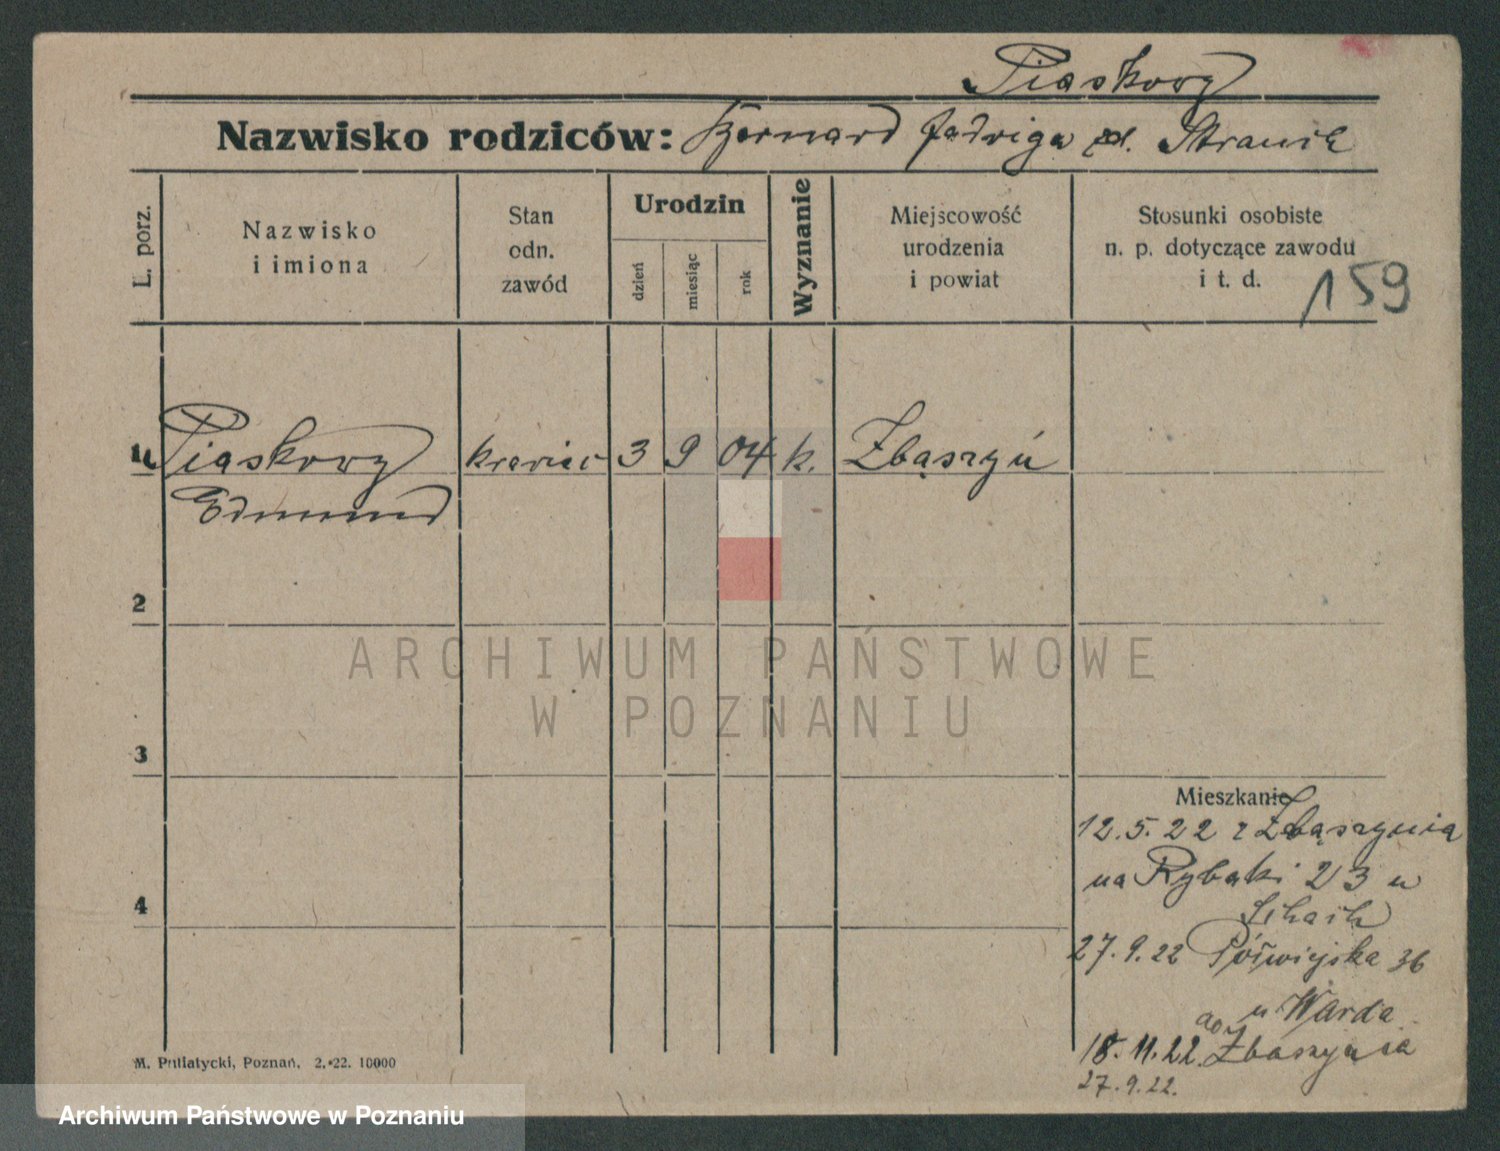 Piaskowy
Nazwisko rodziców: Bernard Jadwiga zd.
L. porz.
Nazwisko
i imiona
Stan
odn.
zawód
Urodzin
dzień
miesiąc
rok
Wyznanie
Miejscowość
urodzenia
i powiat
Stosunki osobiste
n. p. dotyczące zawodu
i t. d.
159
1
Piaskowy krawiec 3 9 04 k. Zbąszyń
Edmund
2
3
4
ARCHIWUM PAŃSTWOWE
W POZNANIU
Mieszkanie
12.5.22 z Zbąszynia
na Rybaki 23 u
27.9.22 Półwiejska 36
u Warda
do
18.11.22. Zbąszynia
27.9.22.
M. Putiatycki, Poznań, 2. 22. 10000
Archiwum Państwowe w Poznaniu